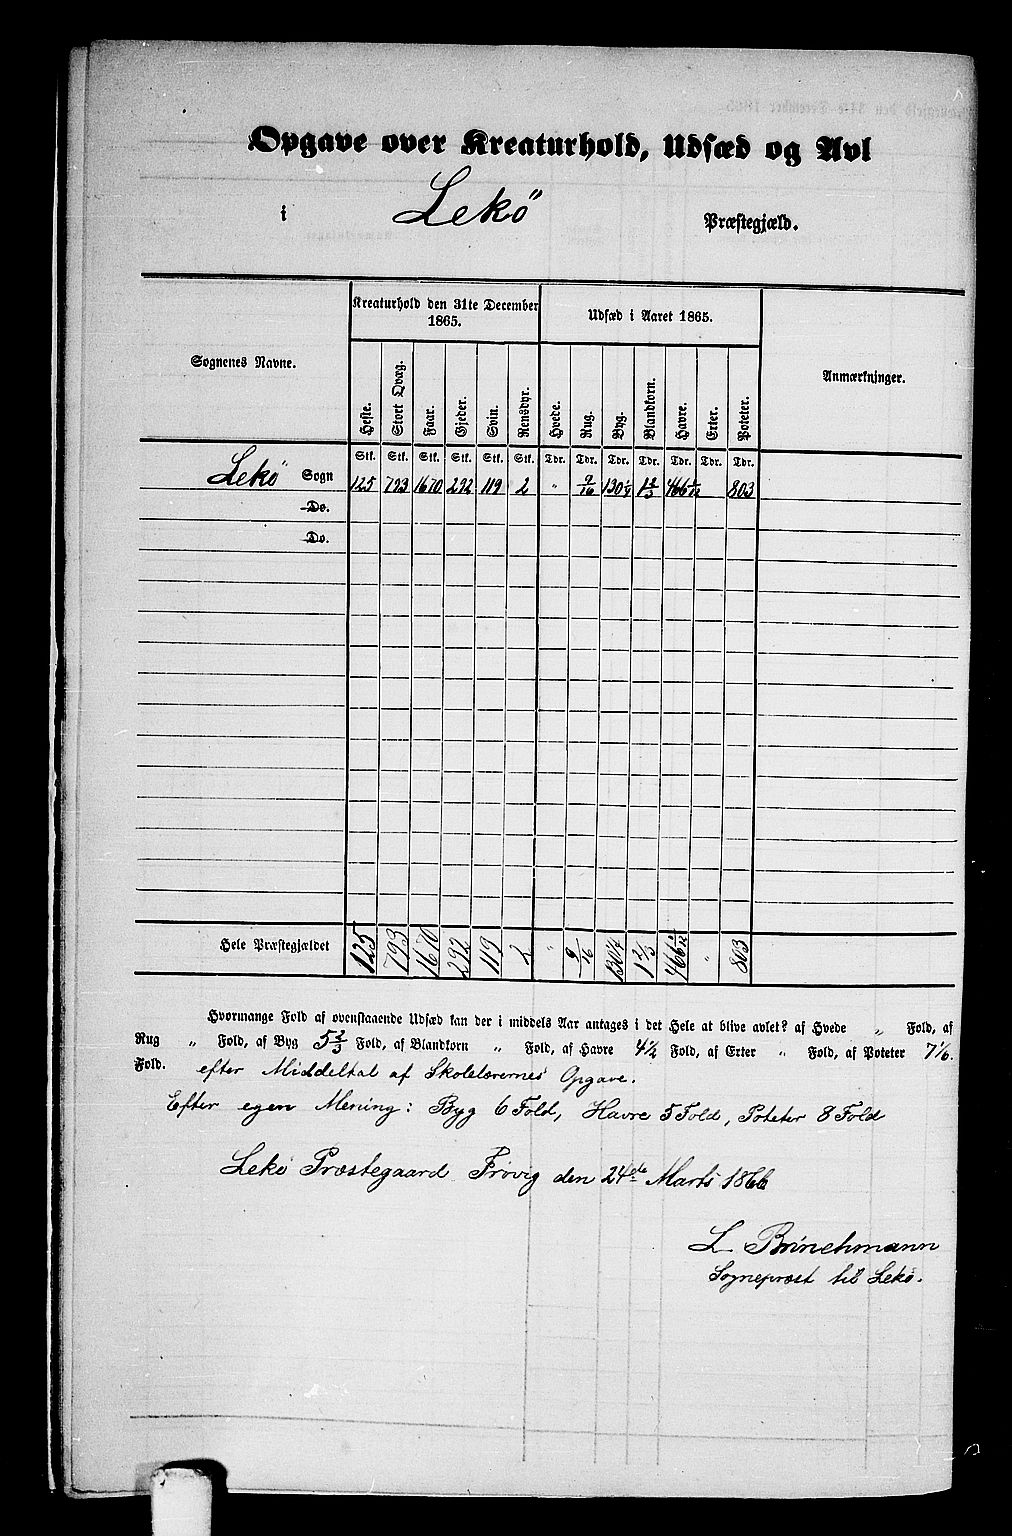 Opgave over Kreaturhold, Udsæd og Avl
i Lekö Præstegjæld.
Sognenes Navne.
Kreaturhold den 31te December 1865.
Udsæd i Aaret 1865.
Anmærkninger.
Heste. Stort Qvæg. Faar. Gjeder. Svin. Rensdyr. Hvede. Rug. Byg. Blandkorn. Havre. Erter. Poteter.
Stk. Stk. Stk. Stk. Stk. Stk. Tdr. Tdr. Tdr. Tdr. Tdr. Tdr. Tdr.
Lekö Sogn 125 793 1670 292 119 2 " 9/16 130 1/4 1 2/3 803
Do.
Do.
Hele Præstegjældet 125 793 1670 292 119 2 " 9/16 130 1/4 1 2/3 " 803
Hvormange Fold af ovenstaaende Udsæd kan der i middels Aar antages i det Hele at blive avlet? af Hvede " Fold, af
Rug " Fold, af Byg 5 2/3 Fold, af Blandkorn " Fold, af Havre 4 1/2 Fold, af Erter " Fold, af Poteter 7 1/6.
Fold. efter Middeltal af Skolelærernes Opgave.
Efter egen Mening: Byg 6 Fold, Havre 5 Fold, Poteter 8 Fold
Lekö Præstegaard Frövig den 24de Marts 1866
L Brinchmann
Sognepræst til Lekö.